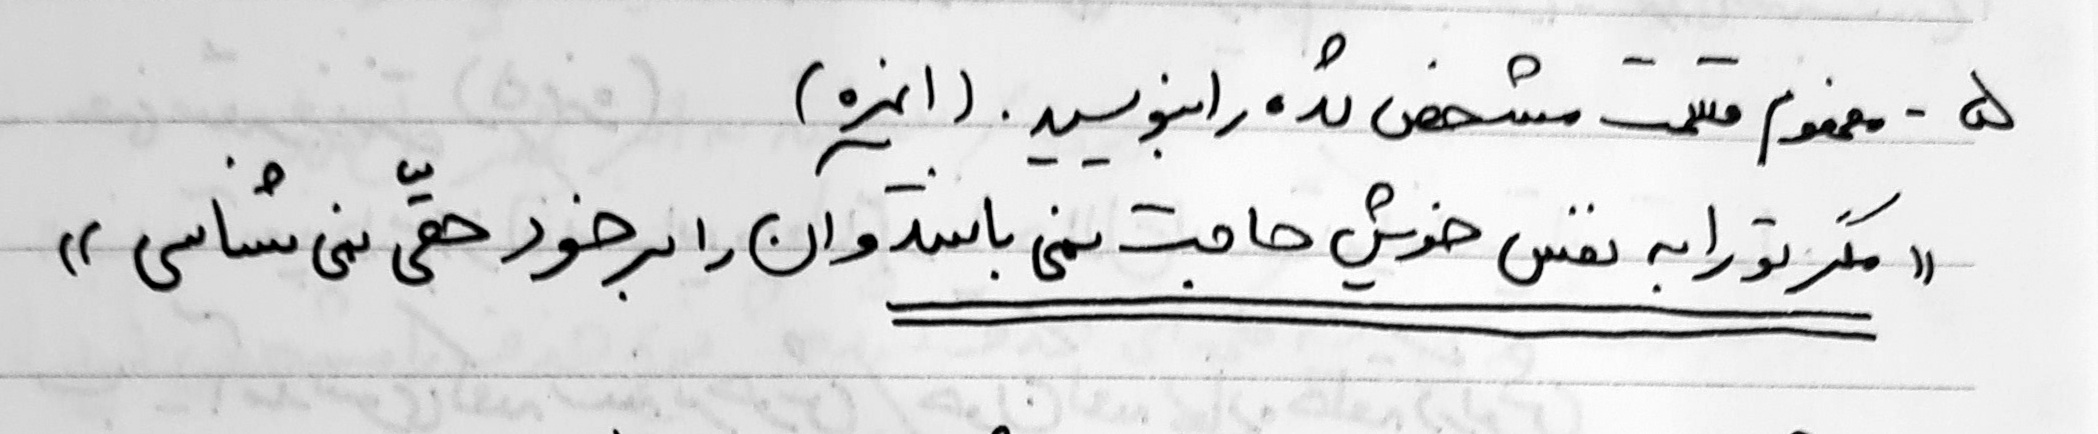 ۵ - مفهوم قسمت مشخص شده را بنویسید. (۱ نمره)
« مگر تو را به نفس خویش حاجت نمی باشد و آن را بر خود حقّی نمی شناسی »